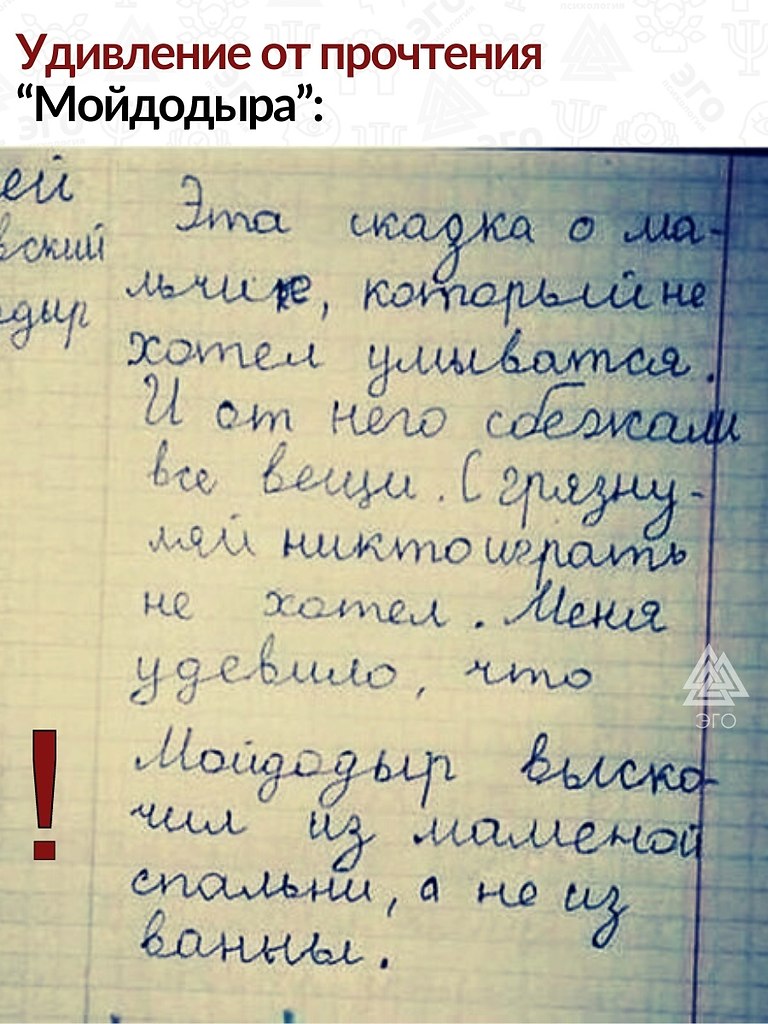 Удивление от прочтения
“Мойдодыра”:
ей
Эта скадка о ма-
вский
льчике, который не
одыр
хотел умыватся.
И от него сбежали
все вещи. С грязну-
ляй никто играть
не хотел. Меня
удевило, что
Мойдодыр выско-
чил из маменой
спальни, а не из
ванны.
!
ЭГО